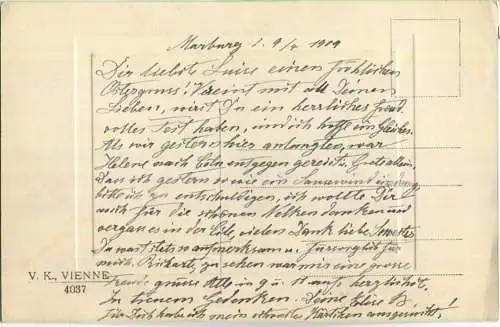 Marburg d. 9/4 1909
Dir liebste Luise einen fröhlichen
Ostergruss! Vereint mit all Deinen
Lieben, wirst Du ein herrliches freud-
volles Fest haben, und ich hoffe ein Gleiches.
Als wir gestern hier anlangten, war
Helene nach Cöln entgegen gereist
Dass ich gestern so wie ein Sausewind
bitte ich zu entschuldigen, ich wollte Dir
noch für die schönen Nelken danken und
vergass es in der Eile, vielen Dank liebe
Du warst stets so aufmerksam u. fürsorglich für
mich. Richards zu sehen war mir eine grosse
Freude, grüsse Alle in
In treuem Gedenken. Deine Elise B.
Für Dich habe ich mein schönstes Kärtchen ausgesucht!
V. K., VIENNE
4037